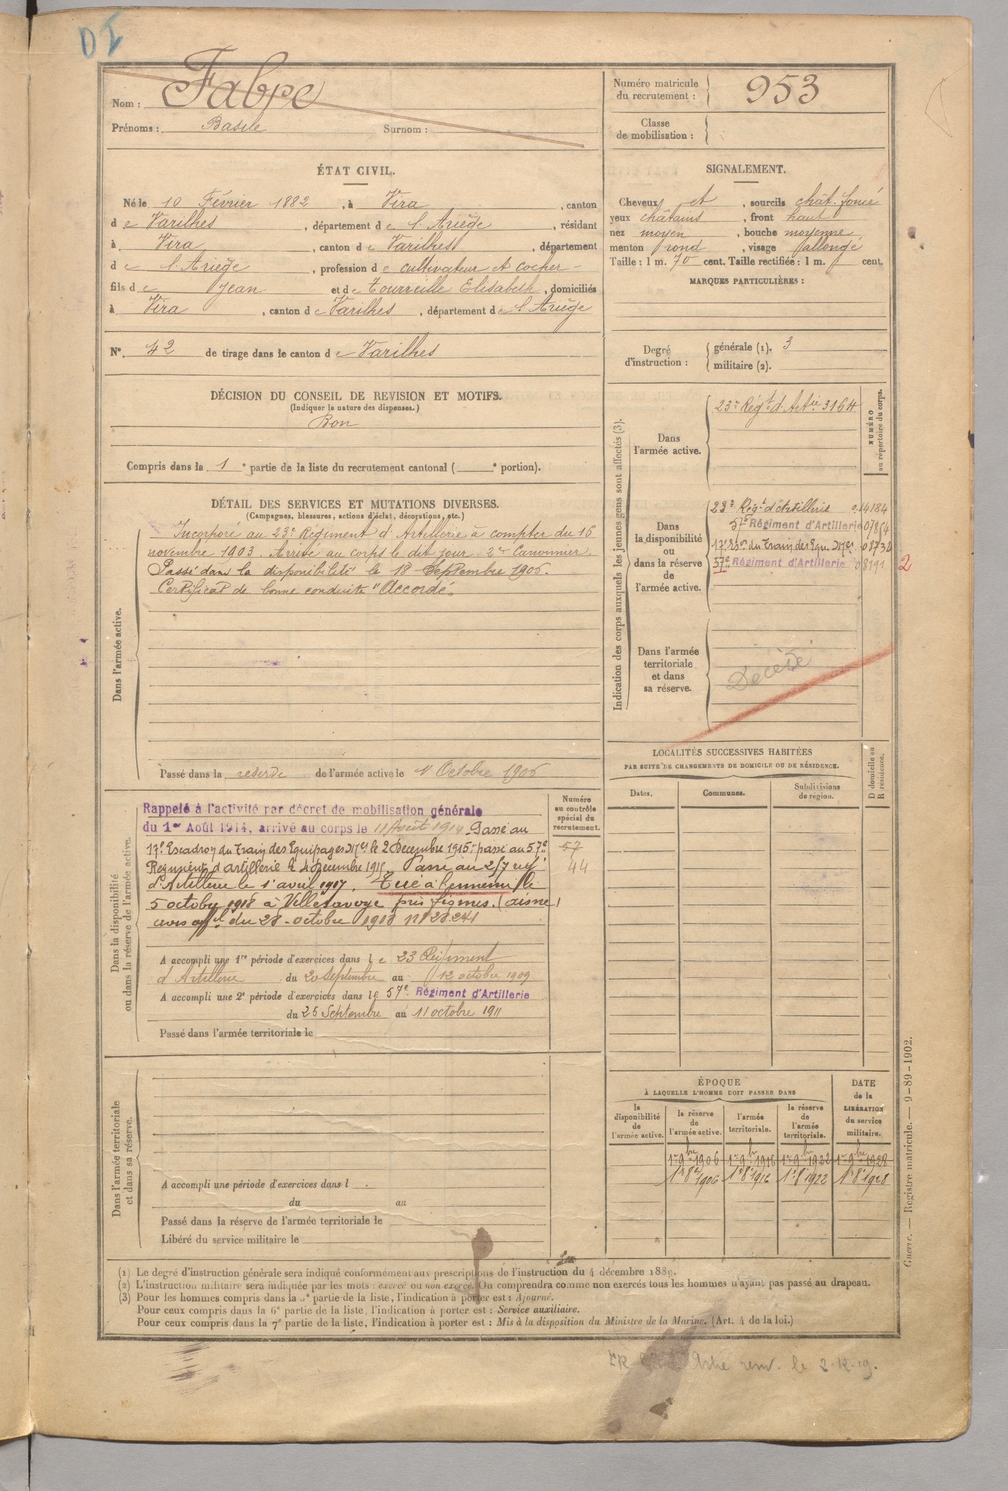 DI
Nom : Fabre
Prénoms : Basile Surnom :
Numéro matricule du recrutement : 953
Classe de mobilisation :
ÉTAT CIVIL.
Né le 10 Février 1882, à Vira, canton
de Varilhes, département de l'Ariège, résidant
à Vira, canton de Varilhes, département
de l'Ariège, profession de cultivateur et cocher
fils de Jean et de Tourreille Elisabeth, domiciliés
à Vira, canton de Varilhes, département de l'Ariège
N° 42 de tirage dans le canton de Varilhes
SIGNALEMENT.
Cheveux et, sourcils chât. foncé
yeux châtains, front haut
nez moyen, bouche moyenne
menton rond, visage allongé
Taille : 1 m. 70 cent. Taille rectifiée : 1 m. cent.
MARQUES PARTICULIÈRES :
Degré d'instruction : générale (1). 3
militaire (2).
DÉCISION DU CONSEIL DE REVISION ET MOTIFS.
(Indiquer la nature des dispenses.)
Bon
Compris dans la 1e partie de la liste du recrutement cantonal ( e portion).
DÉTAIL DES SERVICES ET MUTATIONS DIVERSES.
(Campagnes, blessures, actions d'éclat, décorations, etc.)
Dans l'armée active.
Incorporé au 23e Régiment d'Artillerie à compter du 16
novembre 1903. Arrivé au corps le dit jour. 2e Canonnier.
Passé dans la disponibilité le 18 Septembre 1906.
Certificat de bonne conduite "Accordé".
Passé dans la réserve de l'armée active le 1r Octobre 1906
Indication des corps auxquels les jeunes gens sont affectés (3).
NUMÉRO au répertoire du corps.
Dans l'armée active.
23e Régt d'Artie 3164
Dans la disponibilité ou dans la réserve de l'armée active.
23e Régt d'Artillerie
57e Régiment d'Artillerie
17e Eson du Train des Equ. Mres
57e Régiment d'Artillerie
2
Dans l'armée territoriale et dans sa réserve.
Décédé
LOCALITÉS SUCCESSIVES HABITÉES
PAR SUITE DE CHANGEMENTS DE DOMICILE OU DE RÉSIDENCE.
D domicile ou R résidence.
Dates. Communes. Subdivisions de région.
Dans la disponibilité ou dans la réserve de l'armée active.
Numéro au contrôle spécial du recrutement.
57
44
Rappelé à l'activité par décret de mobilisation générale
du 1er Août 1914, arrivé au corps le 11 Août 1914. Passé au
17e Escadron du Train des Equipages Mres le 2 Decembre 1915; passé au 57e
Regiment d'artillerie le 4 Decembre 1915. Passé au 217e
d'Artillerie le 1er avril 1917. Tué à l'ennemi le
5 octobre 1918 à Villesavoye près Fismes. (aisne)
avis off.el du 28 octobre 1918 n°
A accompli une 1re période d'exercices dans le 23 Régiment
d'Artillerie du 20 Septembre au 12 octobre 1909
A accompli une 2e période d'exercices dans le 57e Régiment d'Artillerie
du 25 Septembre au 11 octobre 1911
Passé dans l'armée territoriale le
Dans l'armée territoriale et dans sa réserve.
A accompli une période d'exercices dans l
du au
Passé dans la réserve de l'armée territoriale le
Libéré du service militaire le
ÉPOQUE
À LAQUELLE L'HOMME DOIT PASSER DANS
DATE de la LIBÉRATION du service militaire.
la disponibilité de l'armée active. la réserve de l'armée active. l'armée territoriale. la réserve de l'armée territoriale.
1er 9bre 1906 1er 9bre 1916 1er 9bre 1922 1er 9bre 1928
1er 8bre 1906 1er 8bre 1916 1er 8bre 1922 1er 8bre 1928
(1) Le degré d'instruction générale sera indiqué conformément aux prescriptions de l'instruction du 4 décembre 1889.
(2) L'instruction militaire sera indiquée par les mots : exercé ou non exercé. On comprendra comme non exercés tous les hommes n'ayant pas passé au drapeau.
(3) Pour les hommes compris dans la 5e partie de la liste, l'indication à porter est : Ajourné.
Pour ceux compris dans la 6e partie de la liste, l'indication à porter est : Service auxiliaire.
Pour ceux compris dans la 7e partie de la liste, l'indication à porter est : Mis à la disposition du Ministre de la Marine. (Art. 4 de la loi.)
Guerre. — Registre matricule. — 9-89-1902.